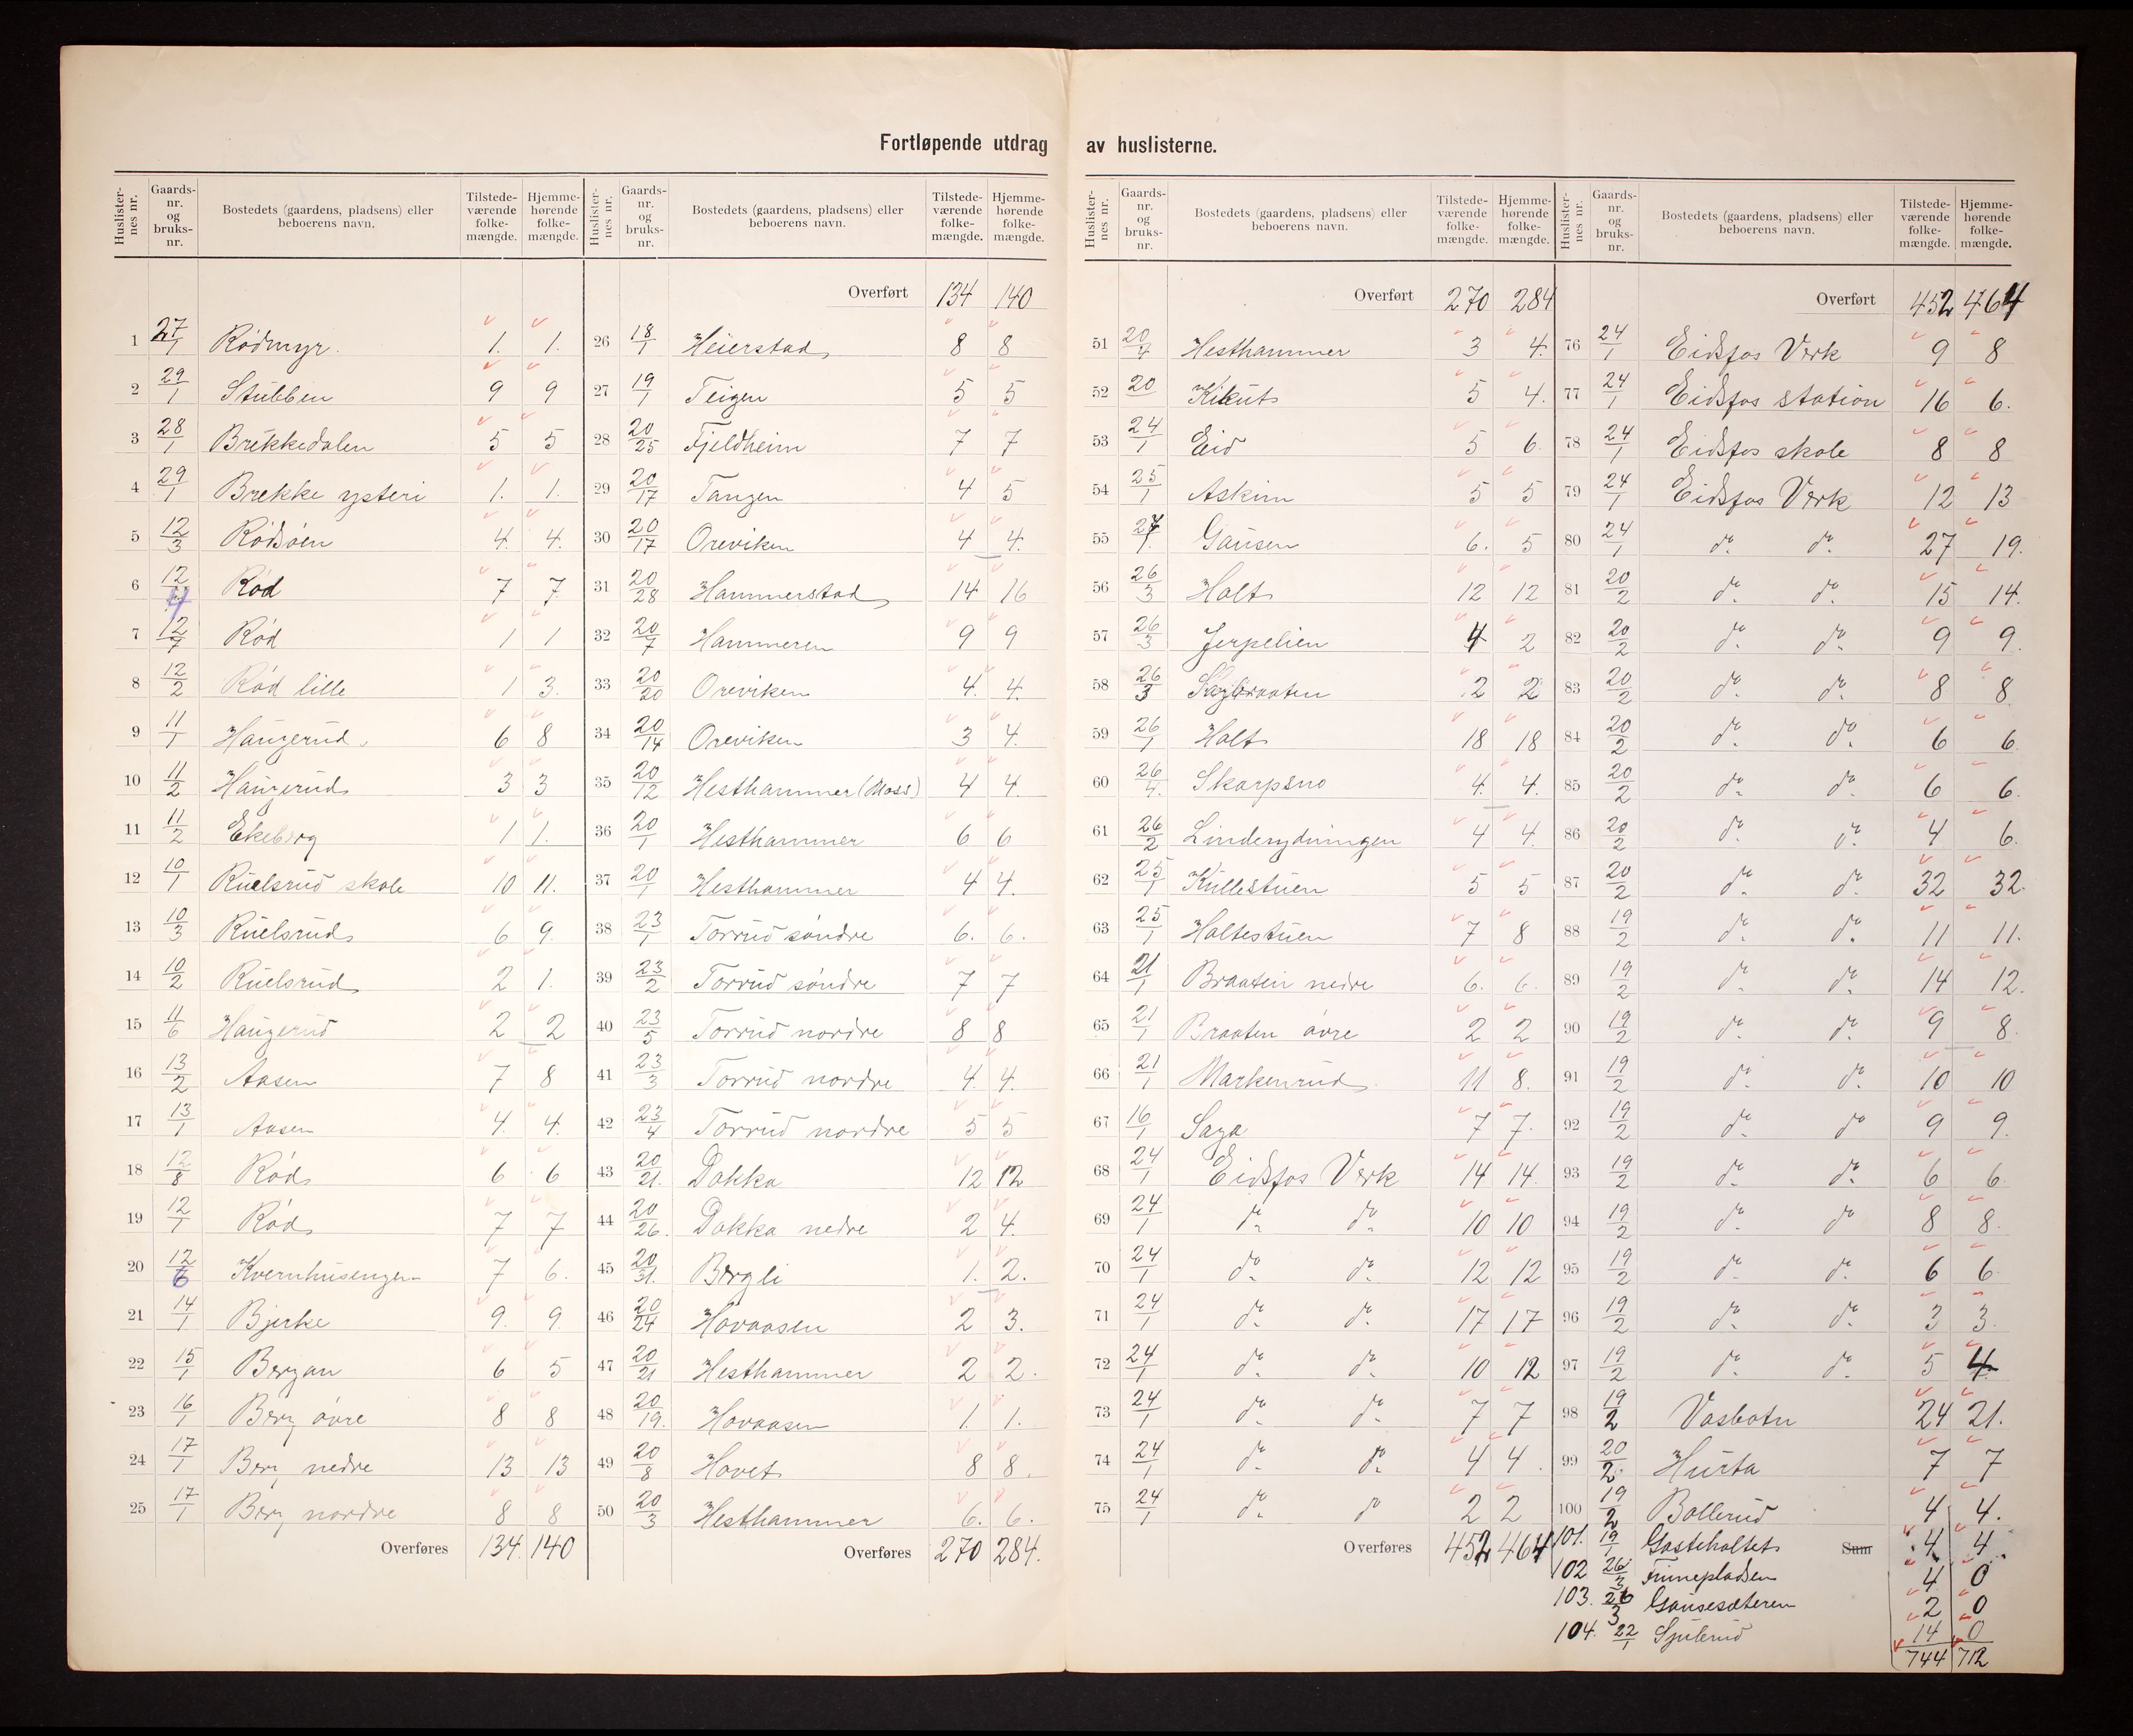 Fortløpende utdrag av huslisterne.
Huslisternes nr. Gaards-nr. og bruks-nr. Bostedets (gaardens, pladsens) eller beboerens navn. Tilstede-værende folke-mængde. Hjemme-hørende folke-mængde.
1 27/1 Rödmyr. 1. 1.
2 29/1 Stubben 9 9
3 28/1 Brekkedalen 5 5
4 29/1 Brekke ysteri 1. 1.
5 12/3 Rödsöen 4. 4.
6 12/4 Röd 7 7
7 12/7 Röd 1 1
8 12/2 Röd lille 1 3.
9 11/1 Haugerud. 6 8
10 11/2 Haugerud 3 3
11 11/2 Ekeberg 1 1.
12 10/1 Ruelsrud skole 10 11.
13 10/3 Ruelsrud 6 9.
14 10/2 Ruelsrud 2 1.
15 11/6 Haugerud 2 2
16 13/2 Aasen 7 8
17 13/1 Aasen 4. 4.
18 12/8 Röd 6 6
19 12/1 Röd 7 7
20 12/6 Kvernhusengen 7 6.
21 14/1 Bjerke 9. 9.
22 15/1 Bergan 6 5
23 16/1 Berg övre 8 8
24 17/1 Berg nedre 13 13
25 17/1 Berg nordre 8 8
Overføres 134. 140
Huslisternes nr. Gaards-nr. og bruks-nr. Bostedets (gaardens, pladsens) eller beboerens navn. Tilstede-værende folke-mængde. Hjemme-hørende folke-mængde.
Overført 134 140
26 18/1 Heierstad 8 8
27 19/1 Teigen 5 5
28 20/25 Fjeldheim 7 7
29 20/17 Tangen 4 5
30 20/17 Oreviken 4 4.
31 20/28 Hammerstad 14 16
32 20/7 Hammeren 9 9
33 20/20 Oreviken 4. 4.
34 20/14 Oreviken 3 4.
35 20/12 Hesthammer (Moss) 4 4.
36 20/1 Hesthammer 6 6
37 20/1 Hesthammer 4 4.
38 23/1 Torrud söndre 6. 6.
39 23/2 Torrud söndre 7 7
40 23/5 Torrud nordre 8 8
41 23/3 Torrud nordre 4. 4.
42 23/4 Torrud nordre 5 5
43 20/21. Dokka 12 12
44 20/26. Dokka nedre 2 4.
45 20/31. Bergli 1. 2.
46 20/24 Hovaasen 2 3.
47 20/21 Hesthammer 2 2.
48 20/19. Hovaasen 1. 1.
49 20/8 Hovet 8 8.
50 20/3 Hesthammer 6. 6.
Overføres 270 284.
Huslisternes nr. Gaards-nr. og bruks-nr. Bostedets (gaardens, pladsens) eller beboerens navn. Tilstede-værende folke-mængde. Hjemme-hørende folke-mængde.
Overført 270 284
51 20/4 Hesthammer 3 4.
52 20 Kikut 5 4.
53 24/1 Eid 5 6.
54 25/1 Askim 5 5
55 27/1. Gausen 6. 5
56 26/3 Holt 12 12
57 26/3 Jerpelien 4 2
58 26/3 2 2
59 26/1 Holt 18 18
60 26/4. Skarpsno 4. 4.
61 26/2 Linderydningen 4 4.
62 25/1 Kullestuen 5 5
63 25/1 Holtestuen 7 8
64 21/1 Braaten nedre 6. 6.
65 21/1 Braaten övre 2 2
66 21/1 Markenrud 11 8.
67 16/1 Saga 7 7.
68 24/1 Eidsfos Verk 14 14.
69 24/1 do. do. 10 10
70 24/1 do. do. 12 12
71 24/1 do. do. 17 17
72 24/1 do. do. 10 12
73 24/1 do. do. 7 7
74 24/1 do. do. 4 4.
75 24/1 do. do 2 2
Overføres 452 464
Huslisternes nr. Gaards-nr. og bruks-nr. Bostedets (gaardens, pladsens) eller beboerens navn. Tilstede-værende folke-mængde. Hjemme-hørende folke-mængde.
Overført 452 464
76 24/1 Eidsfos Verk 9 8
77 24/1 Eidsfos station 16 6.
78 24/1 Eidsfos skole 8 8
79 24/1 Eidsfos Verk 12 13
80 24/1 do. do. 27 19.
81 20/2 do. do. 15 14.
82 20/2 do. do. 9 9.
83 20/2 do. do. 8 8
84 20/2 do. do. 6 6.
85 20/2 do. do. 6 6.
86 20/2 do. do. 4 6.
87 20/2 do. do. 32 32.
88 19/2 do. do. 11 11.
89 19/2 do. do. 14 12.
90 19/2 do. do. 9 8.
91 19/2 do. do. 10 10
92 19/2 do. do 9 9.
93 19/2 do. do. 6 6.
94 19/2 do. do 8 8.
95 19/2 do. do. 6 6.
96 19/2 do. do. 3 3.
97 19/2 do. do. 5 4.
98 19/2 Vasbotn 24 21.
99 20/2. Hurta 7 7
100 19/2 Bollerud 4 4.
101. 19/1 Gasteholtet Sum 4 4.
102 26/3 Finnepladsen 4 0
103. 26/3 Gausesæteren 2 0
104. 22/1 Sjulerud 14 0
744 712